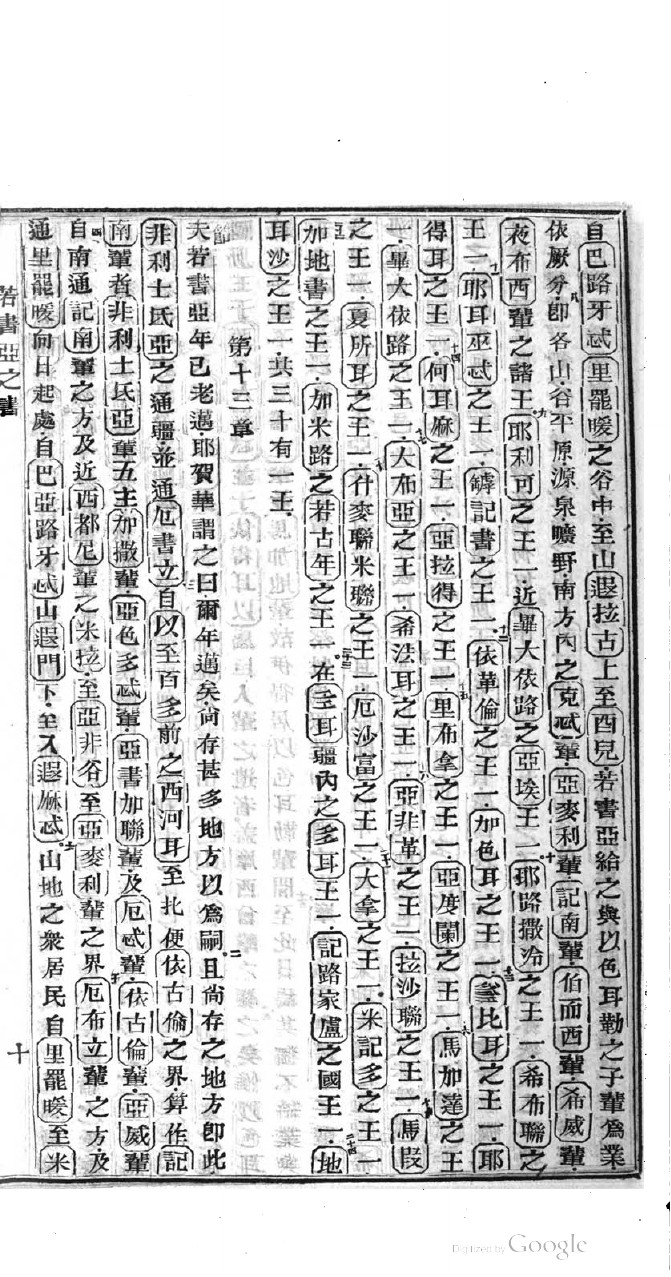 自巴路牙忒里罷暖之谷中至山遐拉古上至西兒若書亞給之與以色耳勒之子輩爲業
依厥分八卽各山谷平原源泉曠野南方內之克忒輩亞麥利輩記南輩伯而西輩希威輩
夜布西輩之諸王九耶利可之王一近畢大依路之亞埃王一十耶路撒冷之王一希布聯之
王一十一耶耳巫忒之王一罅記書之王一十二依革倫之王一加色耳之王一十三爹比耳之王一耶
得耳之王一十四何耳麻之王一亞拉得之王一十五里布拿之王一亞度闌之王一十六馬加達之王
一畢大依路之王一十七大布亞之王一希法耳之王一十八亞非革之王一拉沙聯之王一十九馬叚
之王一夏所耳之王一二十什麥聯米聯之王一厄沙富之王一二十一大拿之王一米記多之王一
二十二加地書之王一加米路之若古年之王一二十三在多耳疆內之多耳王一記路家盧之國王一二十四地
耳沙之王一共三十有一王
第十三章
一夫若書亞年已老邁耶賀華謂之曰爾年邁矣尚存甚多地方以爲嗣且二尚存之地方卽此
非利士氐亞之通疆並通厄書立三自以至百多前之西河耳至北便依古倫之界算作記
南輩者非利士氐亞輩五主加撒輩亞色多忒輩亞書加聯輩及厄忒輩依古倫輩亞威輩
四自南通記南輩之方及近西都尼輩之米拉至亞非谷至亞麥利輩之界五厄布立輩之方及
通里罷暖向日起處自巴亞路牙忒山遐門下至入遐麻忒六山地之衆居民自里罷暖至米
若書亞之書
十
Digitized by Google